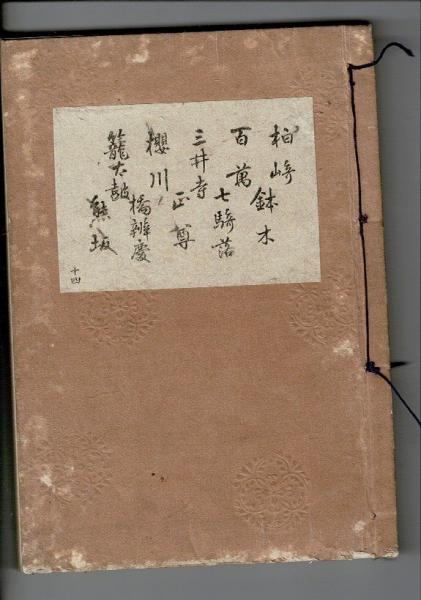 柏崎
鉢木
百萬
七騎落
三井寺
正尊
櫻川
橋辨慶
籠太鼓
熊坂
十四